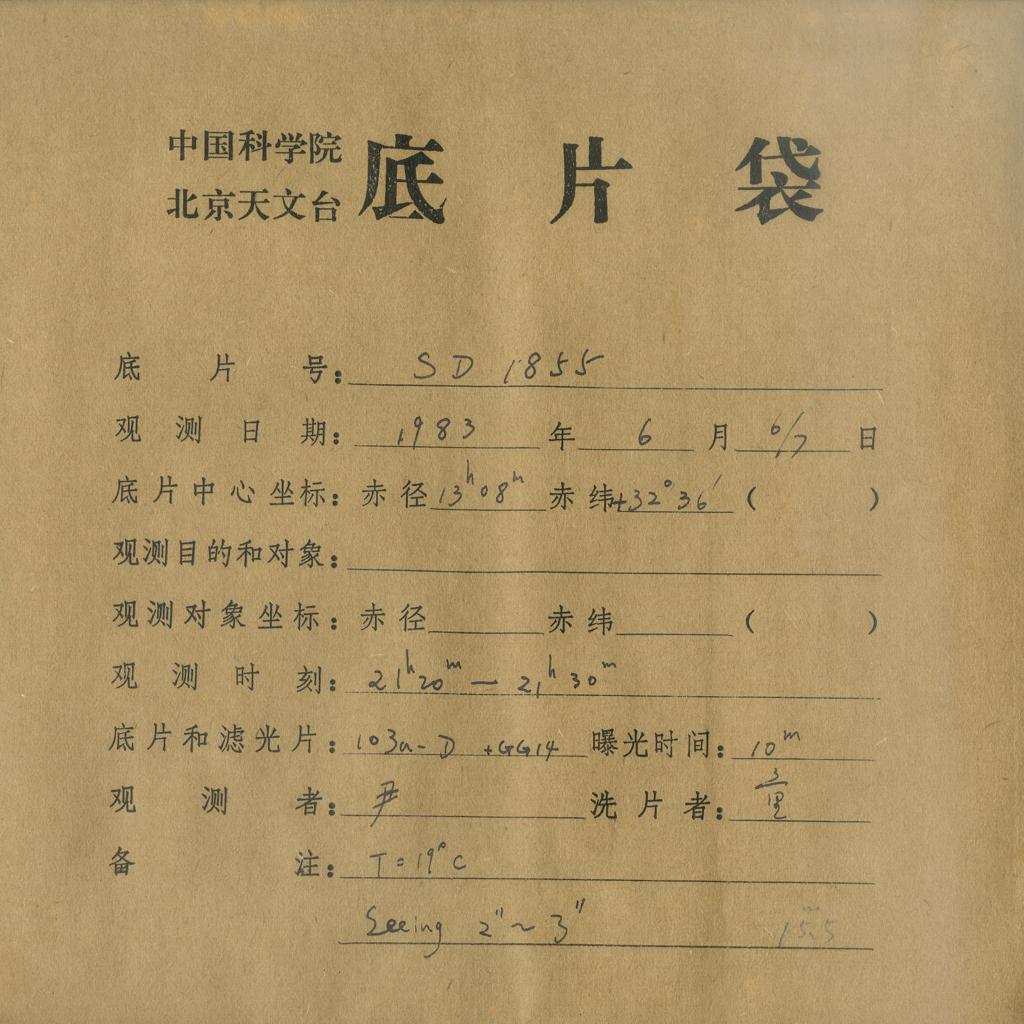 中国科学院
北京天文台
底片袋
底片号: SD 1855
观测日期: 1983 年 6 月 6/7 日
底片中心坐标: 赤径 13ʰ08ᵐ 赤纬 +32°36′ ( )
观测目的和对象:
观测对象坐标: 赤径 赤纬 ( )
观测时刻: 21ʰ20ᵐ — 21ʰ30ᵐ
底片和滤光片: 103a-D +GG14 曝光时间: 10ᵐ
观测者: 尹 洗片者:
备注: T=19°C
Seeing 2″~3″ 15ᵐ.5